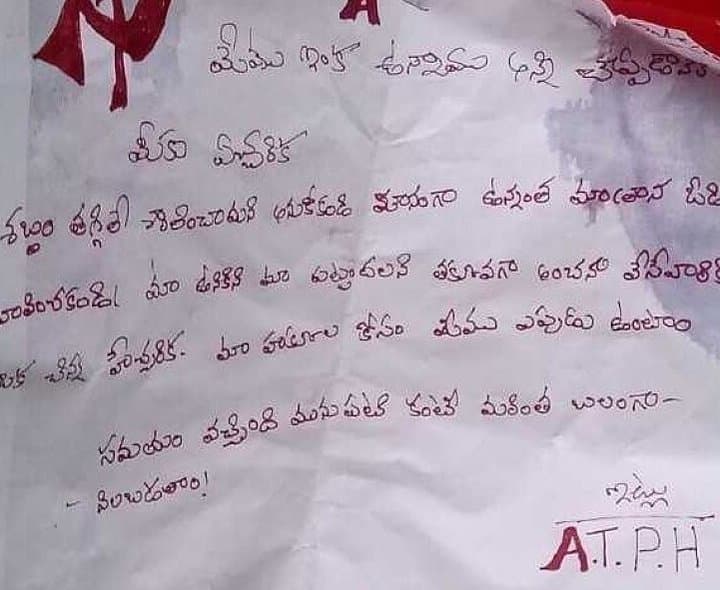 A
మేము ఇంకా ఉన్నాము అన్ని
మీకు హెచ్చరిక
శబ్దం తగ్గితే శాతించాదుని అనుకోకండి మౌనంగా ఉన్నంత మాత్రాన ఓడి
మా ఉనికిని మా పట్టుదలని తక్కువగా అంచనా వేసేవారికి
ఒక చిన్న హేచ్చరిక. మా హక్కుల కోసం మేము ఎప్పుడు ఉంటాం
సమయం వచ్చింది మునుపటి కంటే మరింత బలంగా-
- నిలబడుతాం!
ఇట్లు
A.T.P.H